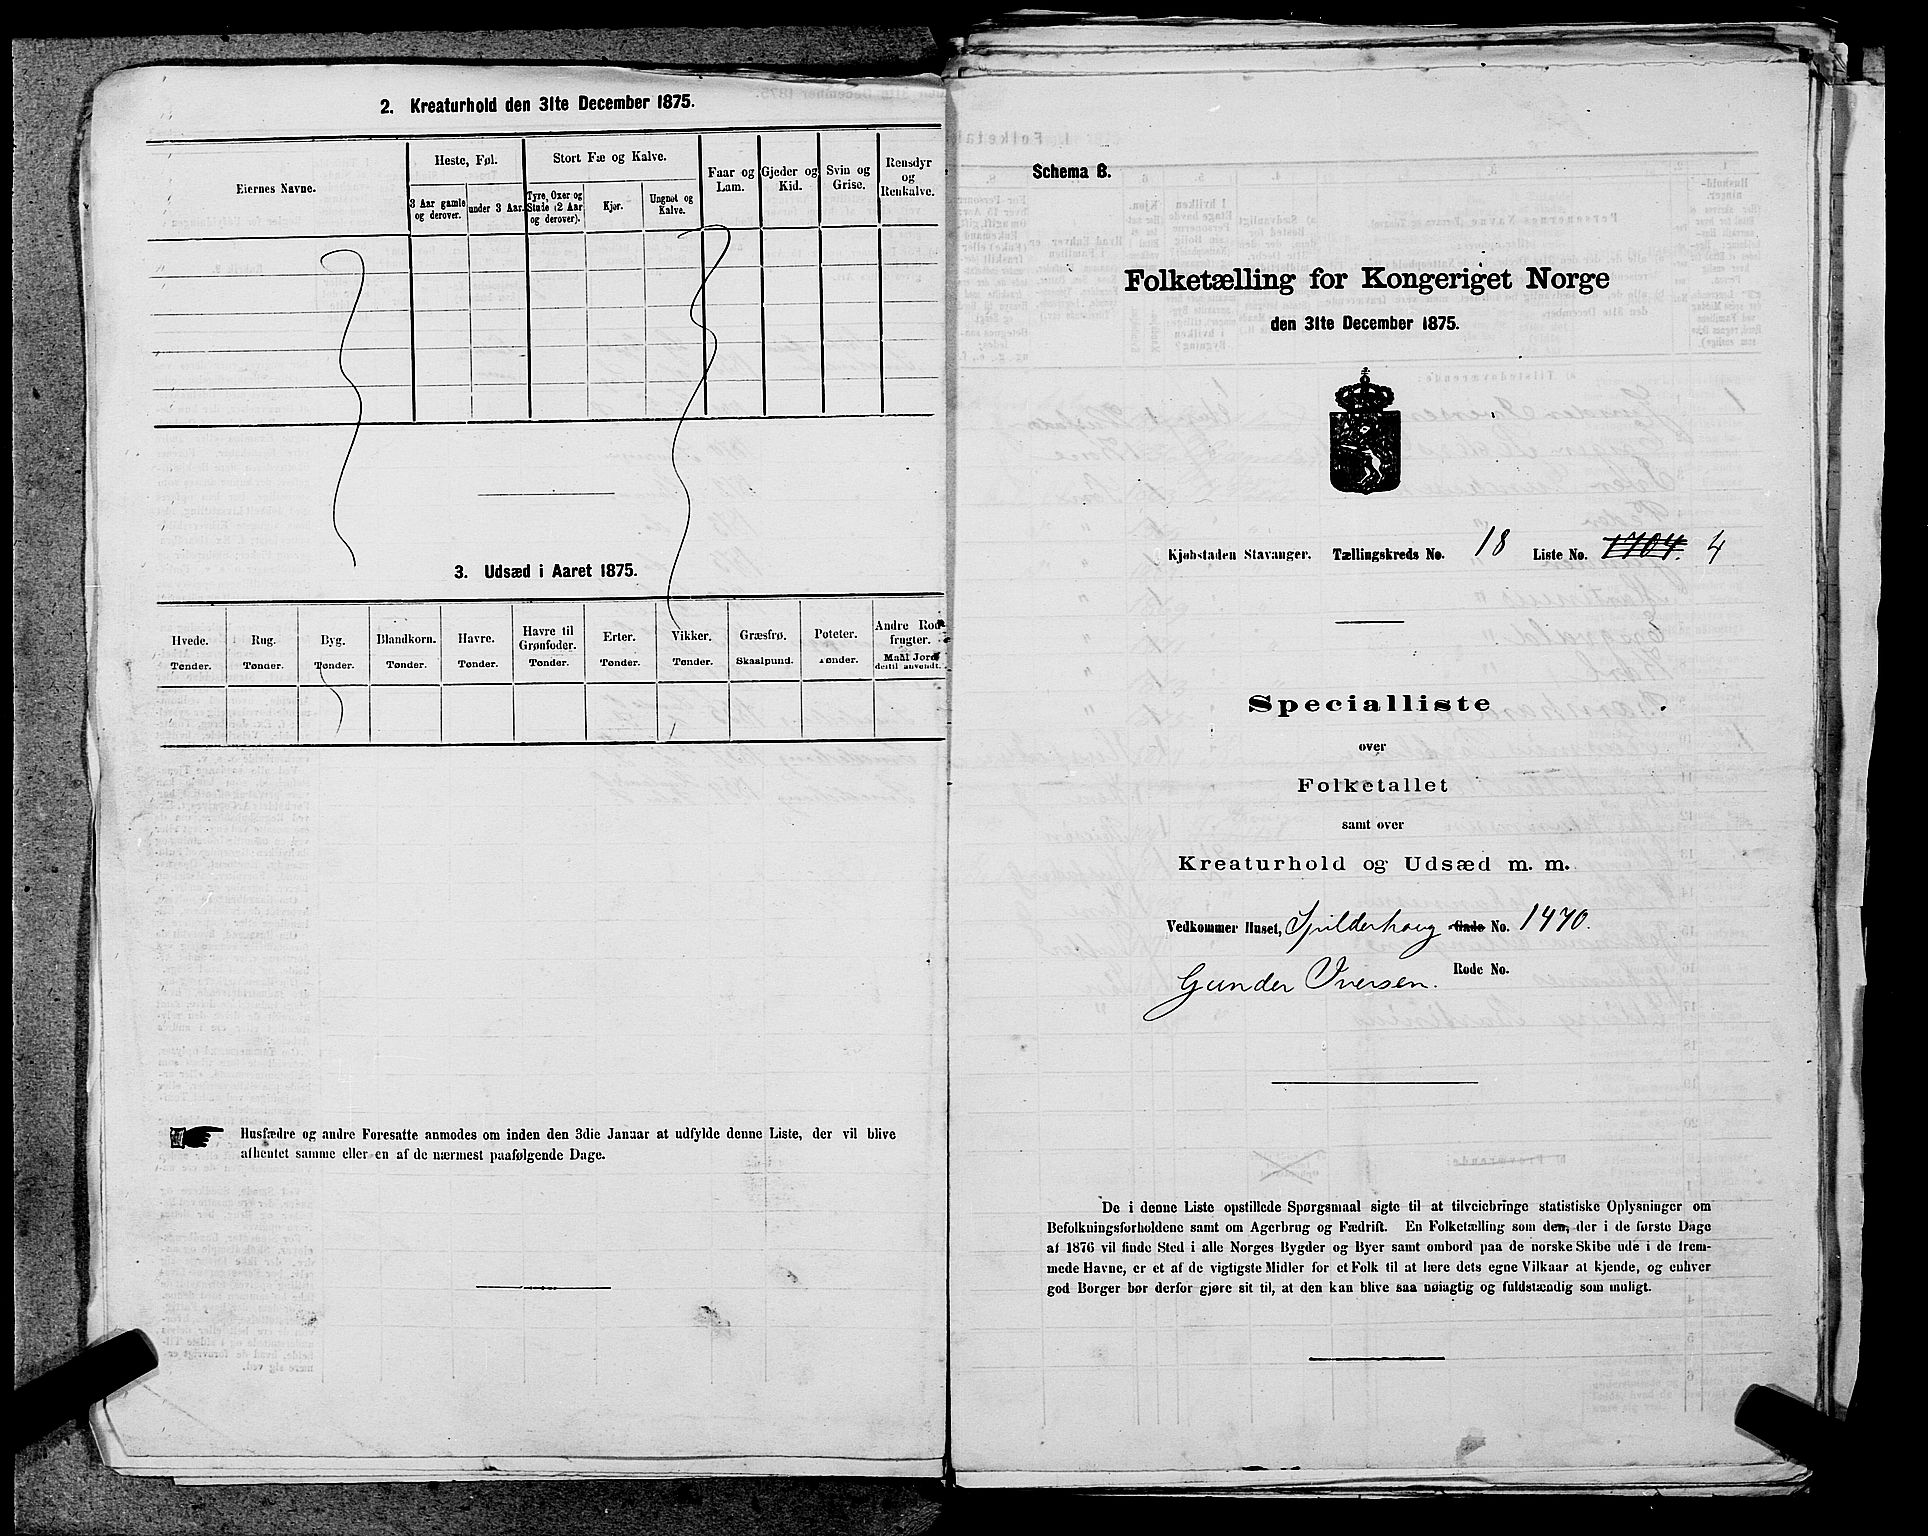 2. Kreaturhold den 31te December 1875.
Eiernes Navne.
Heste, Føl.
3 Aar gamle og derover.
under 3 Aar.
Stort Fæ og Kalve.
Tyre, Oxer og Stude (2 Aar og derover).
Kjør.
Ungnøt og Kalve.
Faar og Lam.
Gjeder og Kid.
Svin og Grise.
Rensdyr og Renkalve.
3. Udsæd i Aaret 1875.
Hvede. Tønder.
Rug. Tønder.
Byg. Tønder.
Blandkorn. Tønder.
Havre. Tønder.
Havre til Grønfoder. Tønder.
Erter. Tønder.
Vikker. Tønder.
Græsfrø. Skaalpund.
Poteter. Tønder.
Andre Rodfrugter. Maal Jord dertil anvendt.
Husfædre og andre Foresatte anmodes om inden den 3die Januar at udfylde denne Liste, der vil blive
afhentet samme eller en af de nærmest paafølgende Dage.
Schema 8.
Folketælling for Kongeriget Norge
den 31te December 1875.
Kjøbstaden Stavanger. Tællingskreds No. 18 Liste No. 1704. 4
Specialliste
over
Folketallet
samt over
Kreaturhold og Udsæd m. m.
Vedkommer Huset, Spilderhoug Gade No. 1470.
Gunder Iversen. Rode No.
De i denne Liste opstillede Spørgsmaal sigte til at tilveiebringe statistiske Oplysninger om
Befolkningsforholdene samt om Agerbrug og Fædrift. En Folketælling som den, der i de første Dage
af 1876 vil finde Sted i alle Norges Bygder og Byer samt ombord paa de norske Skibe ude i de frem-
mede Havne, er et af de vigtigste Midler for et Folk til at lære dets egne Vilkaar at kjende, og enhver
god Borger bør derfor gjøre sit til, at den kan blive saa nøiagtig og fuldstændig som muligt.